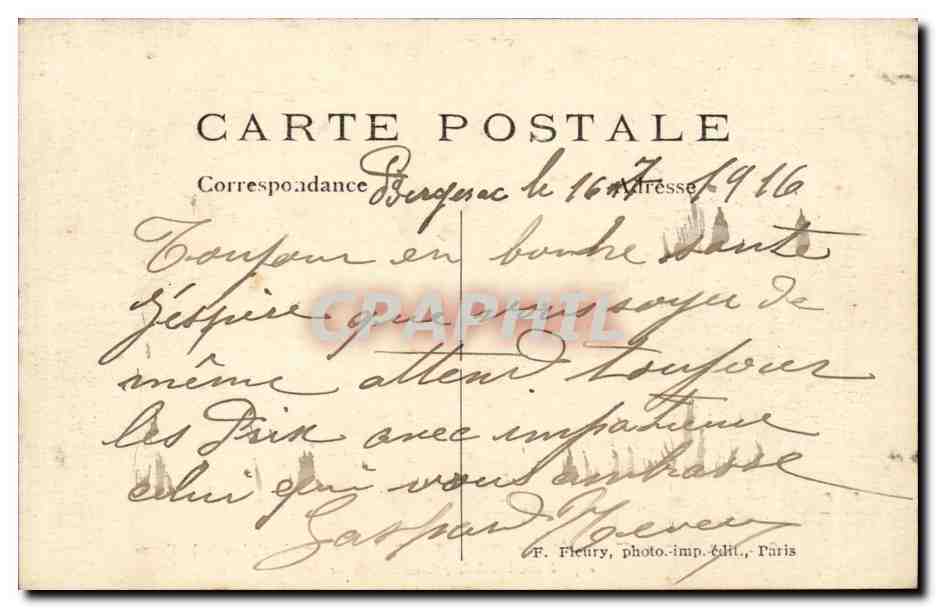 CARTE POSTALE
Correspondance
Adresse
Bergerac le 16 7 1916
Toujour en bonne sante
J'éspère que vous soyer de
même attend toujours
les Prix avec impatience
celui qui vous embrasse
Gaspard
CPAPHIL
F. Fleury, photo.-imp.-édit., Paris